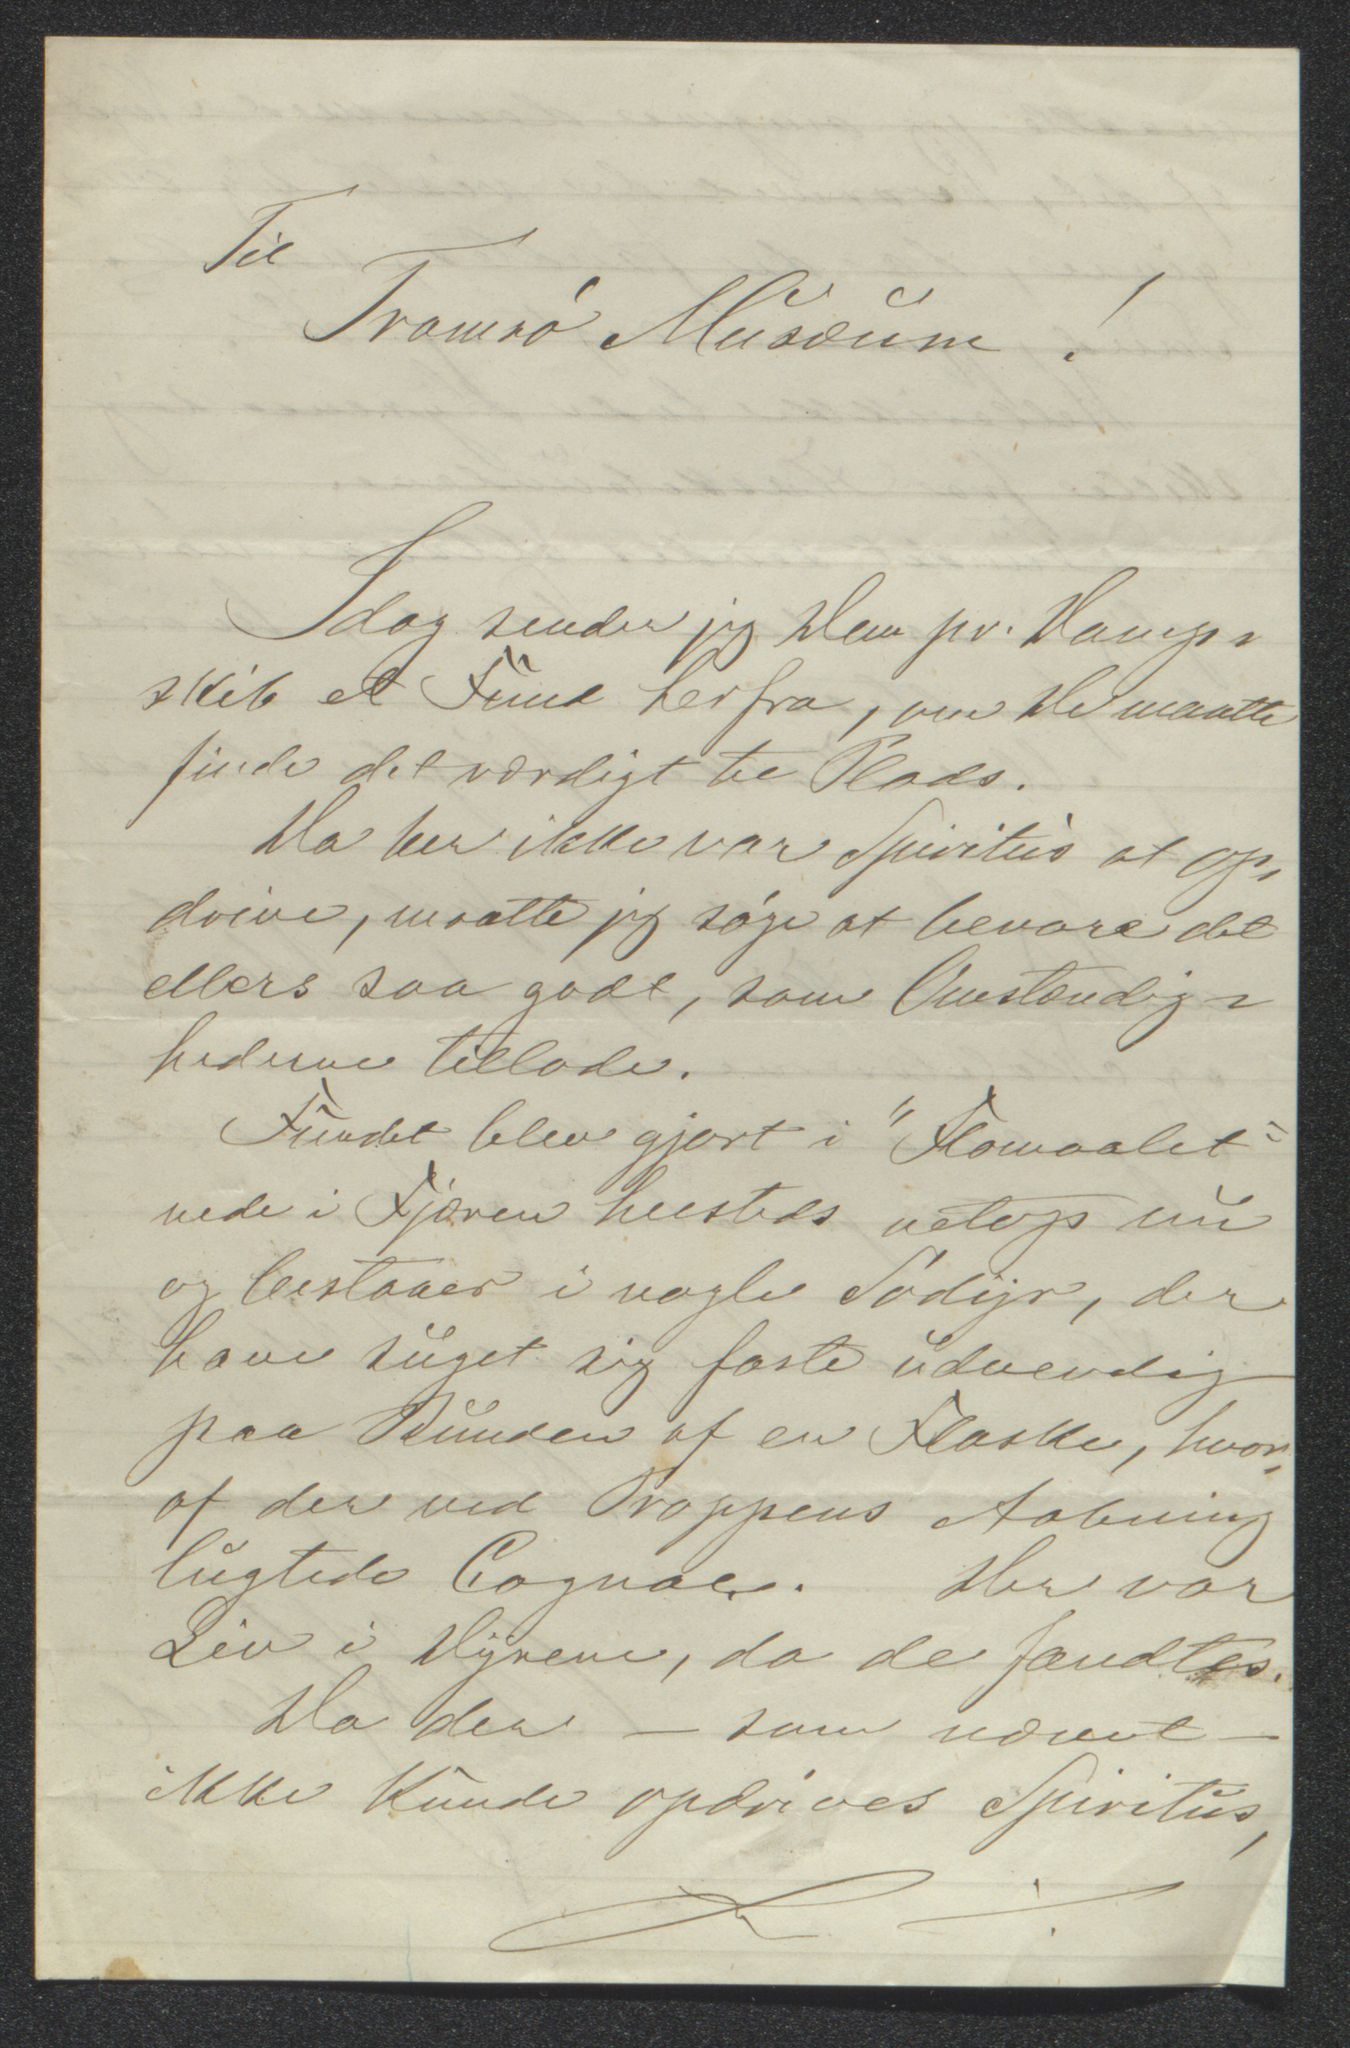 Til
Tromsö Musæum!
Idag sender jeg Dem pr. Damp-
skib et Fund herfra, om De maatte
finde det værdigt til Plads.
Da her ikke var Spiritus at op-
drive, maatte jeg söge at bevare det
ellers saa godt, som Omstændig-
hederne tillode.
Fundet blev gjort i "Flomaalet"
nede i Fjæren heesteds netop nu
og bestaaer i nogle Södyr, der
have suget sig faste udvendig
paa Bunden af en Flaske, hvor-
af der ved Proppens Aabning
lugtede Cognac. Der var
Liv i Dyrene, da de fandtes.
Da der – som nævnt –
ikke kunde opdrives Spiritus,